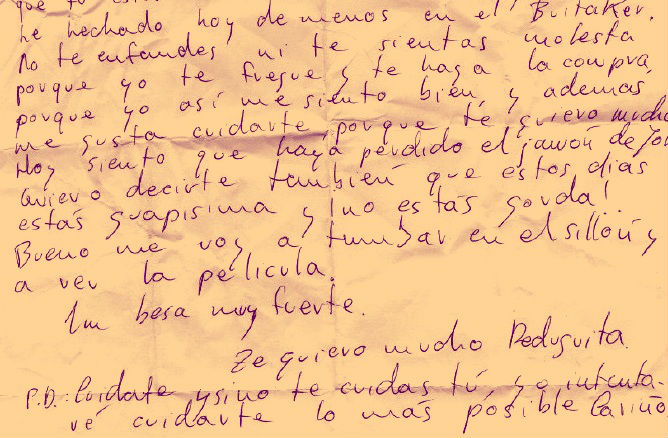 que tú
he hechado hoy de menos en el Buitaker.
No te enfandes ni te sientas molesta
porque yo te fuegue y te haga la compra,
porque yo así me siento bien y además,
me gusta cuidarte, porque te quiero mucho
Hoy siento que haya perdido el jamón de
Quiero decirte también que estos dias
estás guapisima y ¡no estás gorda!
Bueno me voy a tumbar en el sillón y
a ver la pelicula.
Un besa muy fuerte.
Te quiero mucho Peduguita.
P.D.: Cuidate y si no te cuidas tú, yo intenta-
ré cuidarte lo más posible Cariño